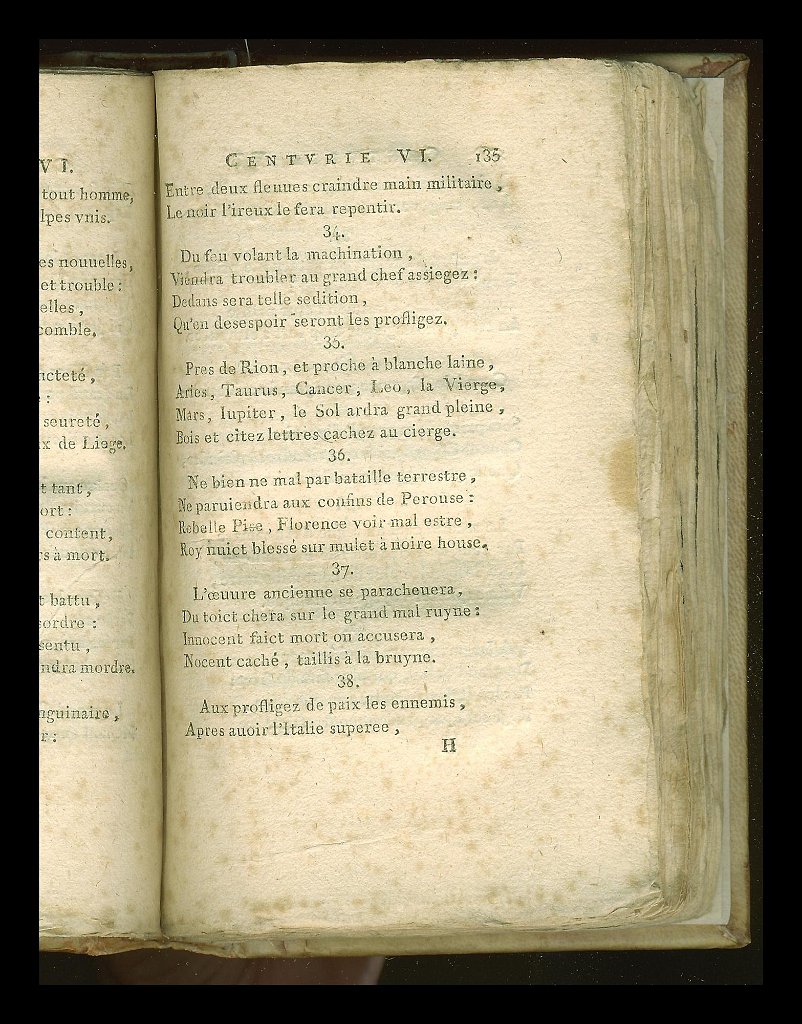 VI.
tout homme,
lpes vnis.
es nouuelles,
et trouble :
elles ,
comble.
cteté ,
:
seureté ,
x de Liege.
t tant ,
ort :
content,
s à mort.
t battu ,
ordre :
sentu ,
ndra mordre.
nguinaire ,
r :
CENTVRIE VI. 135
Entre deux fleuues craindre main militaire ,
Le noir l'ireux le fera repentir.
34.
Du feu volant la machination ,
Viendra troubler au grand chef assiegez :
Dedans sera telle sedition ,
Qu'en desespoir seront les profligez.
35.
Pres de Rion , et proche à blanche laine ,
Aries , Taurus , Cancer , Leo , la Vierge ,
Mars , Iupiter , le Sol ardra grand pleine ,
Bois et citez lettres cachez au cierge.
36.
Ne bien ne mal par bataille terrestre ,
Ne paruiendra aux confins de Perouse :
Rebelle Pise , Florence voir mal estre ,
Roy nuict blessé sur mulet à noire house.
37.
L'œuure ancienne se paracheuera ,
Du toict chera sur le grand mal ruyne :
Innocent faict mort on accusera ,
Nocent caché , taillis à la bruyne.
38.
Aux profligez de paix les ennemis ,
Apres auoir l'Italie superee ,
H